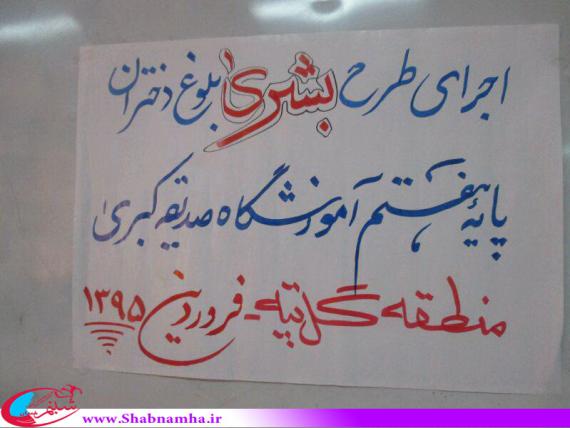 اجرای طرح بشری بلوغ دختران
پایهٔ هفتم آموزشگاه صدیقه کبریٰ
منطقه گل تپه - فروردین ۱۳۹۵
شبنم ها
www.Shabnamha.ir